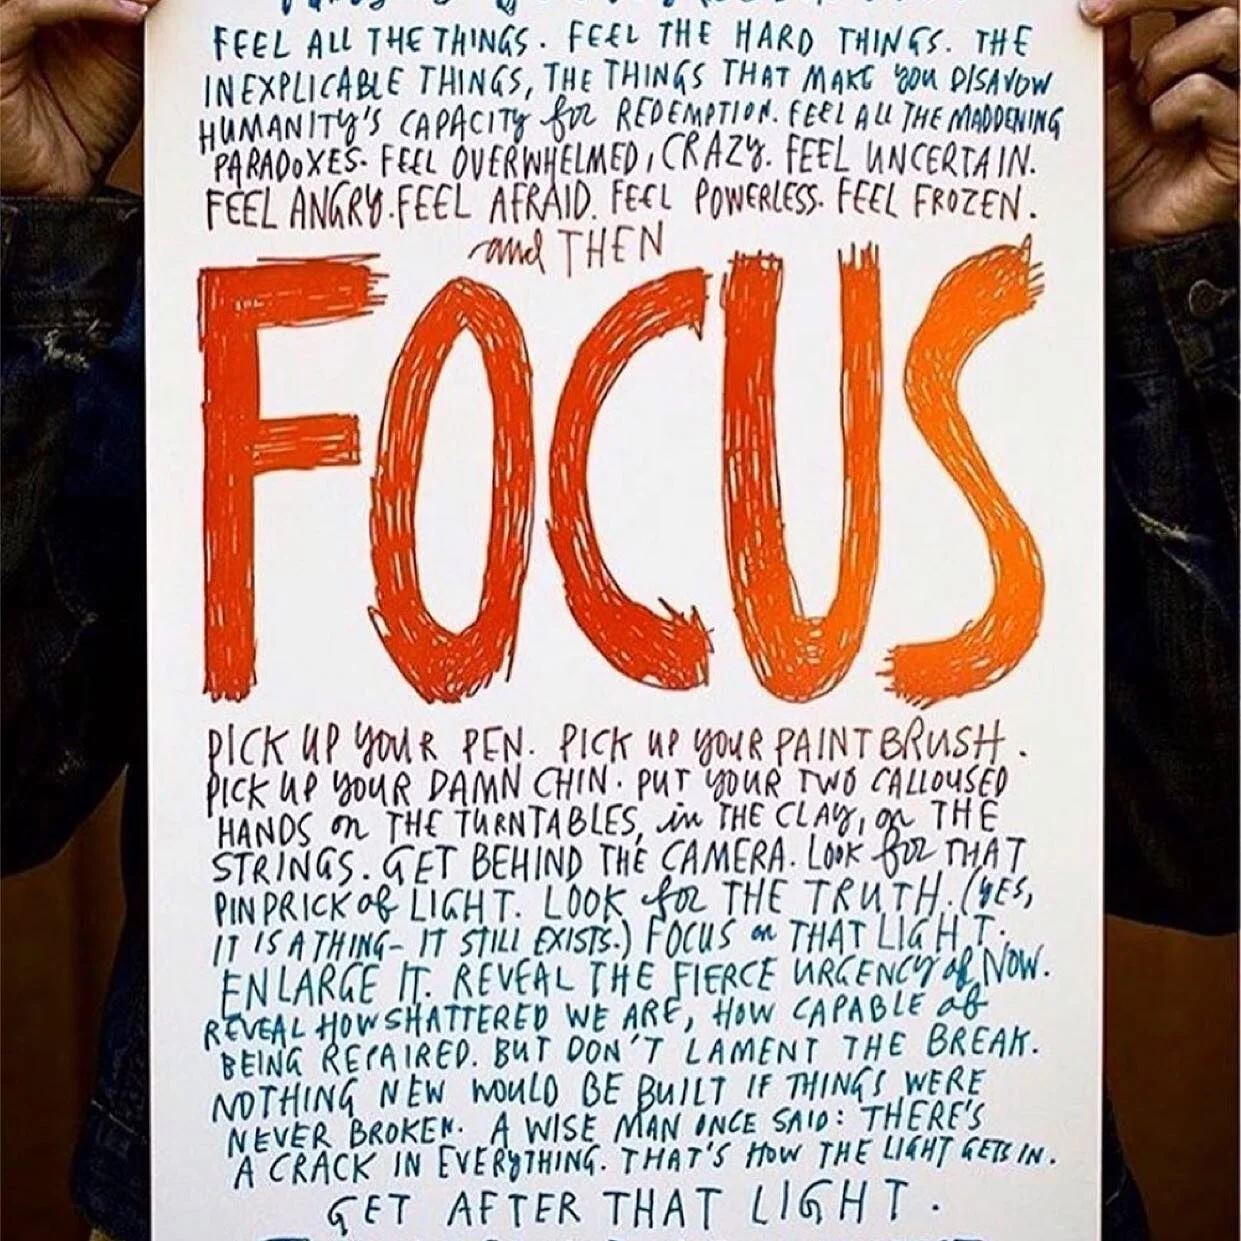 FEEL ALL THE THINGS. FEEL THE HARD THINGS. THE
INEXPLICABLE THINGS, THE THINGS THAT MAKE YOU DISAVOW
HUMANITY'S CAPACITY for REDEMPTION. FEEL ALL THE MADDENING
PARADOXES. FEEL OVERWHELMED, CRAZY. FEEL UNCERTAIN.
FEEL ANGRY. FEEL AFRAID. FEEL POWERLESS. FEEL FROZEN.
and THEN
FOCUS
PICK UP YOUR PEN. PICK UP YOUR PAINTBRUSH.
PICK UP YOUR DAMN CHIN. PUT YOUR TWO CALLOUSED
HANDS on THE TURNTABLES, in THE CLAY, on THE
STRINGS. GET BEHIND THE CAMERA. LOOK for THAT
PINPRICK of LIGHT. LOOK for THE TRUTH. (YES,
IT IS A THING- IT STILL EXISTS.) FOCUS on THAT LIGHT.
ENLARGE IT. REVEAL THE FIERCE URGENCY of NOW.
REVEAL HOW SHATTERED WE ARE, HOW CAPABLE of
BEING REPAIRED. BUT DON'T LAMENT THE BREAK.
NOTHING NEW WOULD BE BUILT IF THINGS WERE
NEVER BROKEN. A WISE MAN ONCE SAID: THERE'S
A CRACK IN EVERYTHING. THAT'S HOW THE LIGHT GETS IN.
GET AFTER THAT LIGHT.